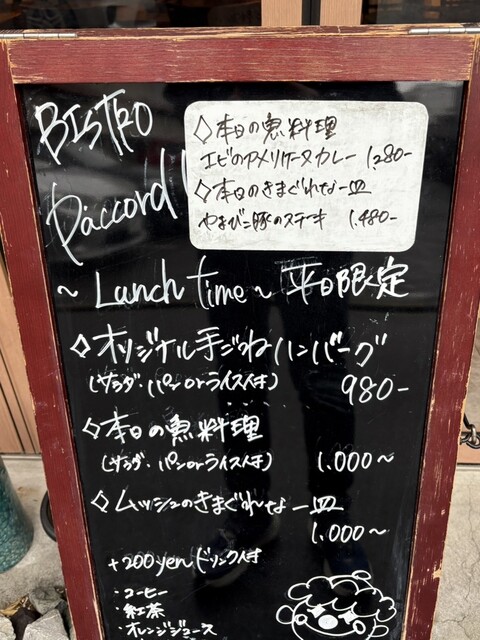 BISTRO
D'accord
◇本日の魚料理
エビのアメリケーヌカレー 1,280-
◇本日のきまぐれな一皿
やまびこ豚のステーキ 1,480-
~ Lunch time ~ 平日限定
◇オリジナル手ごねハンバーグ
(サラダ・パンorライス付) 980-
◇本日の魚料理
(サラダ・パンorライス付) 1,000~
◇ムッシュのきまぐれな一皿
1,000~
+200yen ドリンク付
・コーヒー
・紅茶
・オレンジジュース